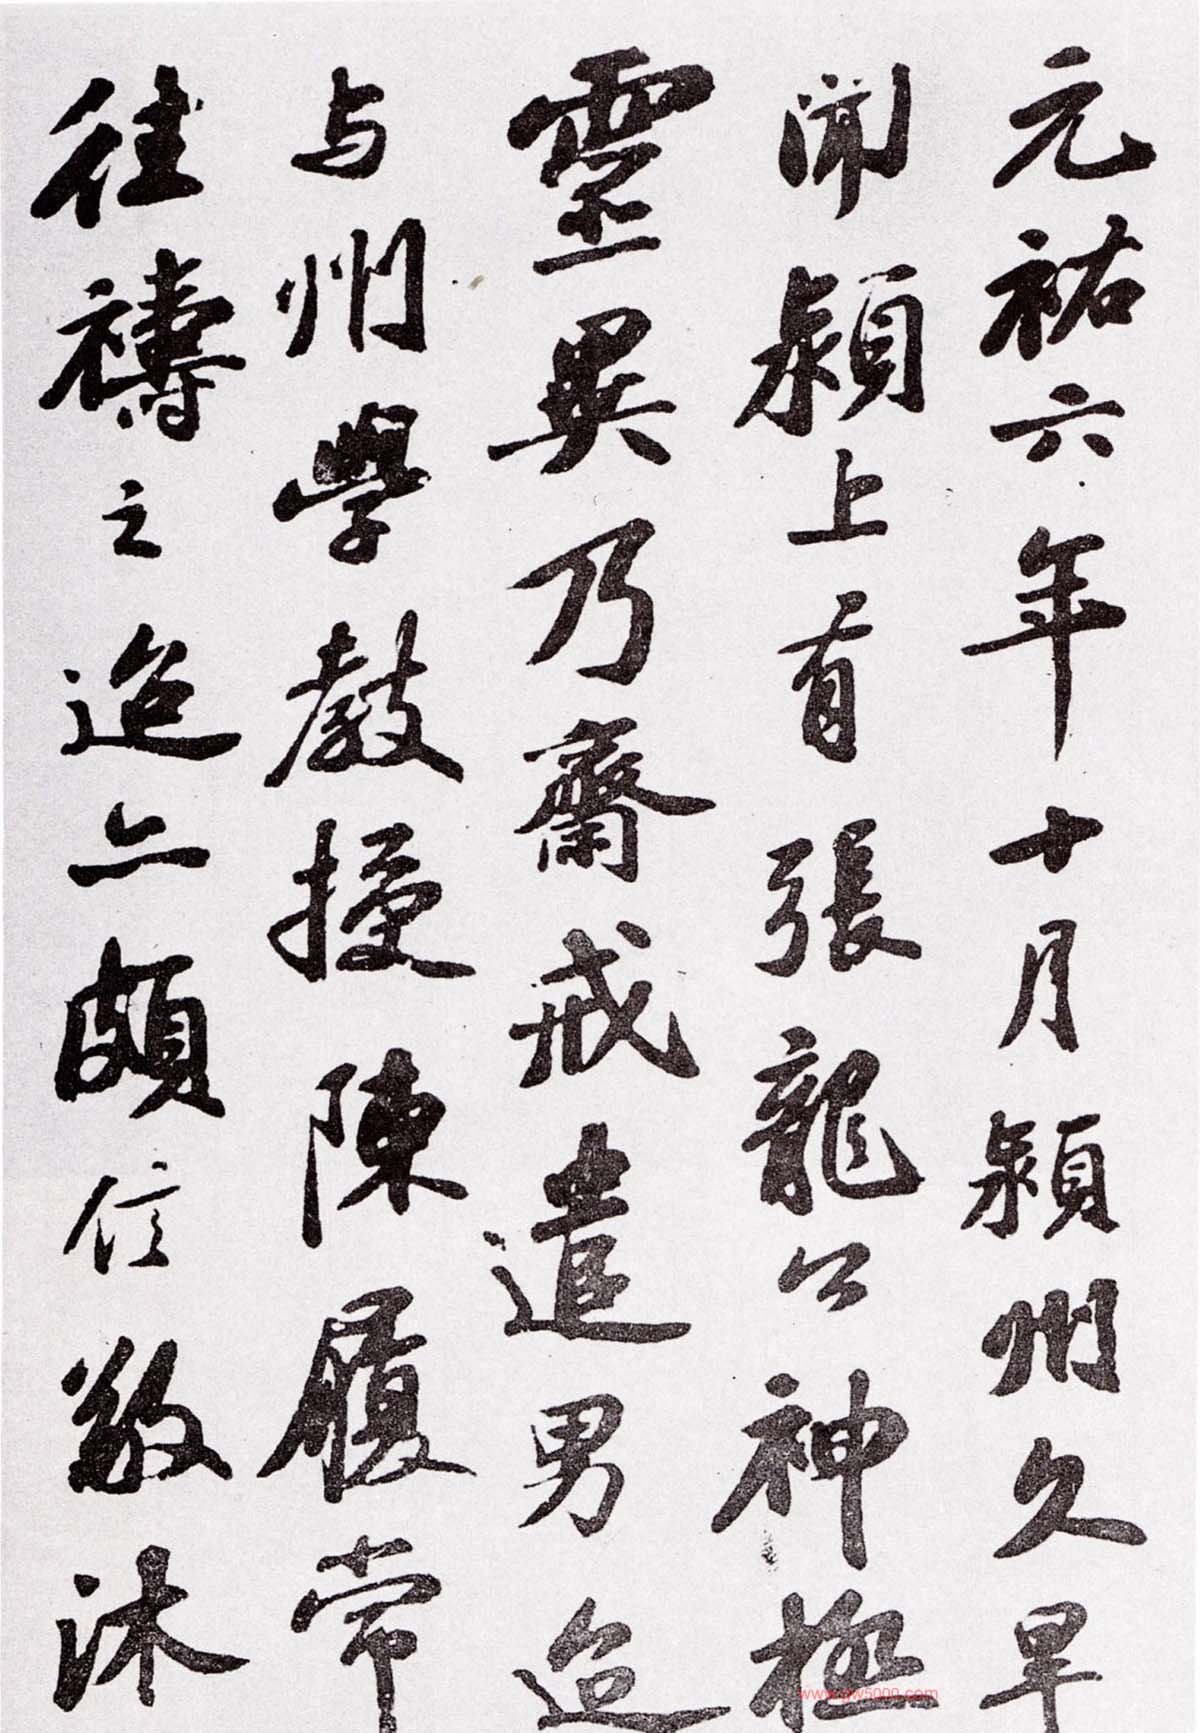 元祐六年十月潁州久旱
聞潁上有張龍公神極
靈異乃齋戒遣男迨
与州學教授陳履常
往禱之迨亦頗信敬沐
www.gw5000.com